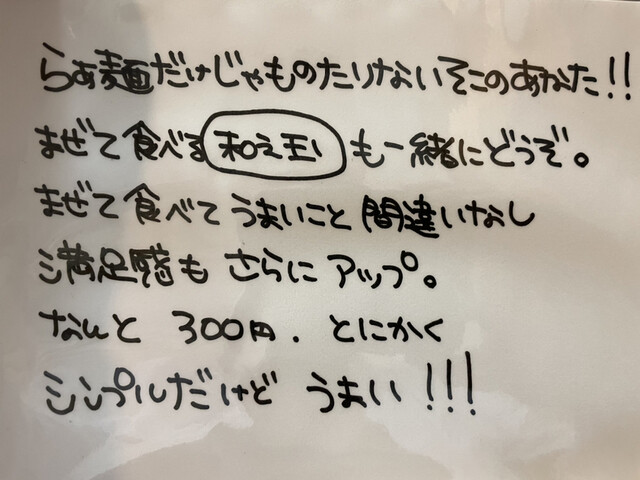 らぁ麺だけじゃものたりないそこのあなた!!
まぜて食べる 和え玉 も一緒にどうぞ。
まぜて食べてうまいこと間違いなし
満足感も さらに アップ。
なんと 300円. とにかく
シンプルだけど うまい!!!